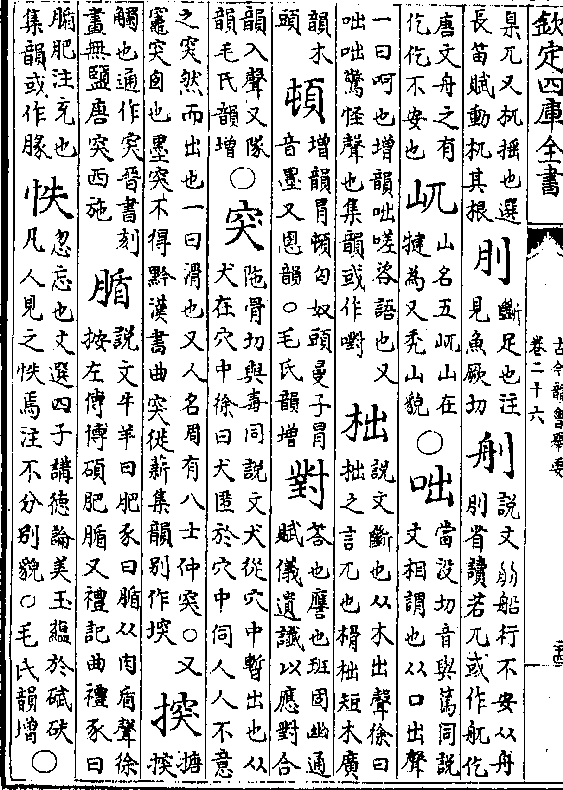 欽定四庫全書
古今韻會舉要
卷二十六
臬兀又杌揺也選
長笛賦動杌其根
刖
斷足也注
見魚厥切
說文船行不安从舟
刖省讀若兀或作舤仡
唐文舟之有
仡仡不安也
屼
山名五屼山在
犍為又禿山貌
○
咄
當没切音與篤同說
文相謂也从口出聲
一曰呵也增韻咄嗟咨語也又
咄咄驚怪聲也集韻或作嚉
柮
說文斷也从木出聲徐曰
柮之言兀也榾柮短木廣
韻木
頭
頓
增韻冒頓匈奴頭曼子冒
音墨又慁韻○毛氏韻增
對
答也譍也班固幽通
賦儀遺讖以應對合
韻入聲又隊
韻毛氏韻增
○
突
陁骨切與毒同說文犬從穴中暫出也从
犬在穴中徐曰犬匿於穴中伺人人不意
之突然而出也一曰滑也又人名周有八士仲突○又
竈突囪也墨突不得黔漢書曲突徙薪集韻别作堗
揬
搪
揬
觸也通作突晉書刻
畫無鹽唐突西施
腯
說文牛羊曰肥豕曰腯从肉盾聲徐
按左傳博碩肥腯又禮記曲禮豕曰
腯肥注充也
集韻或作腞
怢
忽忘也文選四子講德論美玉蘊於碔砆
凡人見之怢焉注不分别貌○毛氏韻增
○